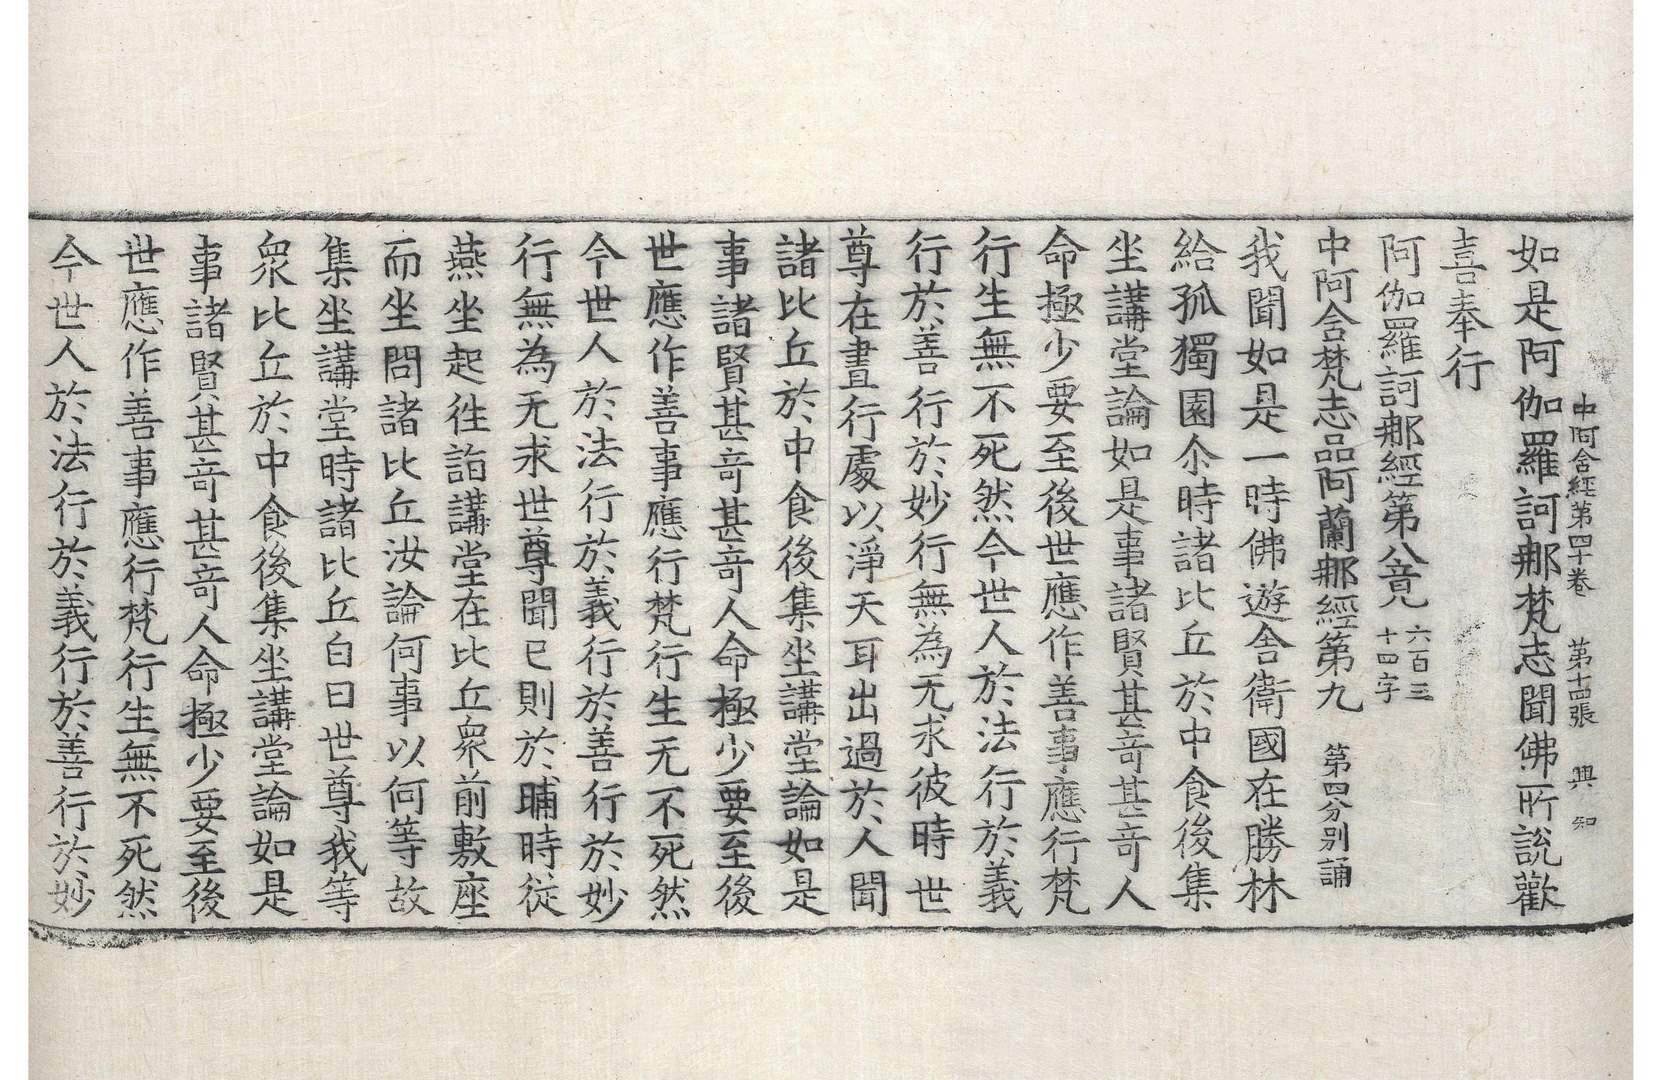 中阿含經第四十卷 第十四張 興 知
如是阿伽羅訶那梵志聞佛所說歡
喜奉行
阿伽羅訶那經第八竟 六百三十四字
中阿含梵志品阿蘭那經第九 第四分別誦
我聞如是一時佛遊舍衛國在勝林
給孤獨園尒時諸比丘於中食後集
坐講堂論如是事諸賢甚奇甚奇人
命極少要至後世應作善事應行梵
行生無不死然今世人於法行於義
行於善行於妙行無為无求彼時世
尊在晝行處以淨天耳出過於人聞
諸比丘於中食後集坐講堂論如是
事諸賢甚奇甚奇人命極少要至後
世應作善事應行梵行生无不死然
今世人於法行於義行於善行於妙
行無為无求世尊聞已則於晡時從
燕坐起徃詣講堂在比丘衆前敷座
而坐問諸比丘汝論何事以何等故
集坐講堂時諸比丘白曰世尊我等
衆比丘於中食後集坐講堂論如是
事諸賢甚奇甚奇人命極少要至後
世應作善事應行梵行生無不死然
今世人於法行於義行於善行於妙